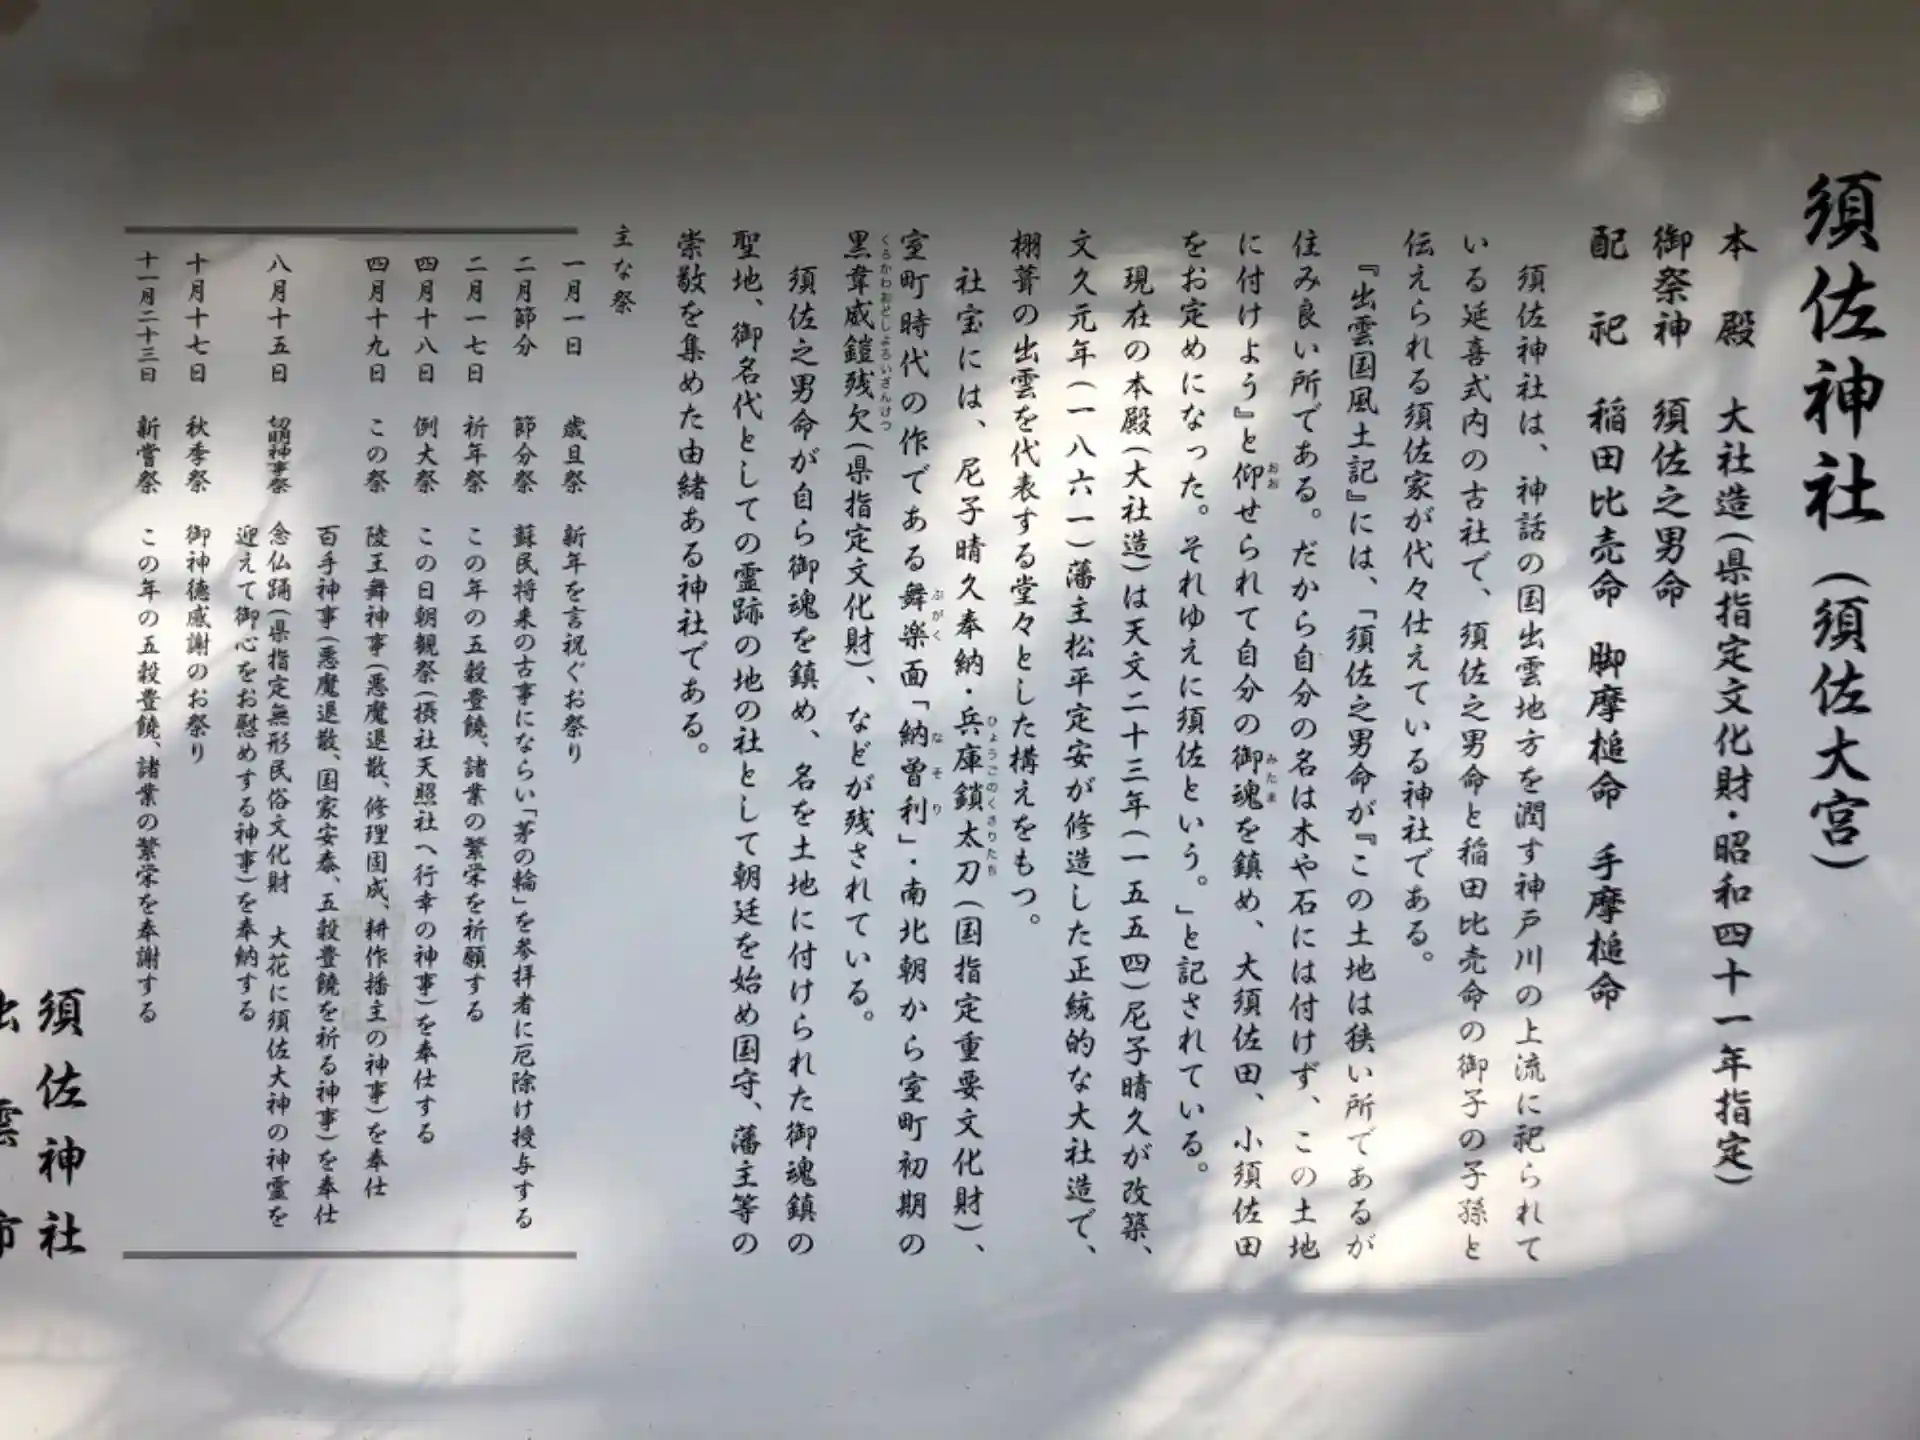 須佐神社(須佐大宮)
本殿 大社造(県指定文化財・昭和四十一年指定)
御祭神 須佐之男命
配祀 稲田比売命 脚摩槌命 手摩槌命
須佐神社は、神話の国出雲地方を潤す神戸川の上流に祀られて
いる延喜式内の古社で、須佐之男命と稲田比売命の御子の子孫と
伝えられる須佐家が代々仕えている神社である。
『出雲国風土記』には、「須佐之男命が『この土地は狭い所であるが
住み良い所である。だから自分の名は木や石には付けず、この土地
に付けよう』と仰せられて自分の御魂を鎮め、大須佐田、小須佐田
をお定めになった。それゆえに須佐という。」と記されている。
現在の本殿(大社造)は天文二十三年(一五五四)尼子晴久が改築、
文久元年(一八六一)藩主松平定安が修造した正統的な大社造で、
栩葺の出雲を代表する堂々とした構えをもつ。
社宝には、尼子晴久奉納・兵庫鎖太刀(国指定重要文化財)、
室町時代の作である舞楽面「納曽利」・南北朝から室町初期の
黒韋威鎧残欠(県指定文化財)、などが残されている。
須佐之男命が自ら御魂を鎮め、名を土地に付けられた御魂鎮の
聖地、御名代としての霊跡の地の社として朝廷を始め国守、藩主等の
崇敬を集めた由緒ある神社である。
主な祭
一月一日 歳旦祭 新年を言祝ぐお祭り
二月節分 節分祭 蘇民将来の古事にならい「茅の輪」を参拝者に厄除け授与する
二月一七日 祈年祭 この年の五穀豊饒、諸業の繁栄を祈願する
四月十八日 例大祭 この日朝覲祭(摂社天照社へ行幸の神事)を奉仕する
四月十九日 この祭 陵王舞神事(悪魔退散、修理固成、耕作播主の神事)を奉仕
百手神事(悪魔退散、国家安泰、五穀豊饒を祈る神事)を奉仕
八月十五日 切明神事祭 念仏踊(県指定無形民俗文化財 大花に須佐大神の神霊を
迎えて御心をお慰めする神事)を奉納する
十月十七日 秋季祭 御神徳感謝のお祭り
十一月二十三日 新嘗祭 この年の五穀豊饒、諸業の繁栄を奉謝する
須佐神社
出雲市